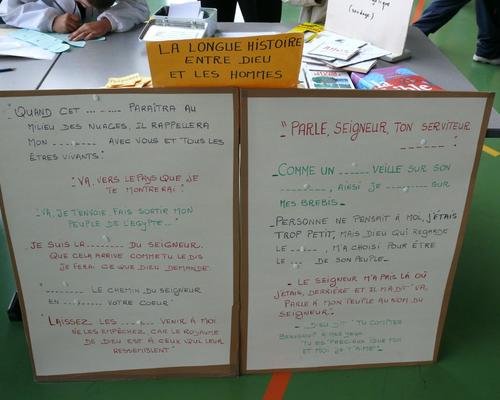 LA LONGUE HISTOIRE
ENTRE DIEU
ET LES HOMMES
"QUAND CET ........ PARAÎTRA AU
MILIEU DES NUAGES, IL RAPPELLERA
MON ......... AVEC VOUS ET TOUS LES
ÊTRES VIVANTS."
"VA, VERS LE PAYS QUE JE
TE MONTRERAI."
"VA, JE T'ENVOIE, FAIS SORTIR MON
PEUPLE DE L'EGYPTE..."
JE SUIS LA ........ DU SEIGNEUR.
QUE CELA ARRIVE COMME TU LE DIS
JE FERAI CE QUE DIEU DEMANDE.
"........ LE CHEMIN DU SEIGNEUR
EN ......... VOTRE COEUR"
"LAISSEZ LES ...... VENIR À MOI
NE LES EMPÊCHEZ CAR LE ROYAUME
DE DIEU EST À CEUX QUI LEUR
RESSEMBLENT"
"PARLE, SEIGNEUR, TON SERVITEUR
......!
_COMME UN ...... VEILLE SUR SON
........, AINSI JE ....... SUR
MES BREBIS_
_PERSONNE NE PENSAIT À MOI, J'ÉTAIS
TROP PETIT, MAIS DIEU QUI REGARDE
LE ....., M'A CHOISI POUR ÊTRE
LE .... DE SON PEUPLE_
_LE SEIGNEUR M'A PRIS LÀ OÙ
J'ÉTAIS, DERRIÈRE ET IL M'A DIT "VA,
PARLE À MON PEUPLE AU NOM DU
SEIGNEUR".
_DIEU DIT "TU COMPTES
BEAUCOUP À MES YEUX
TU ES PRÉCIEUX POUR MOI
ET MOI JE T'AIME"_